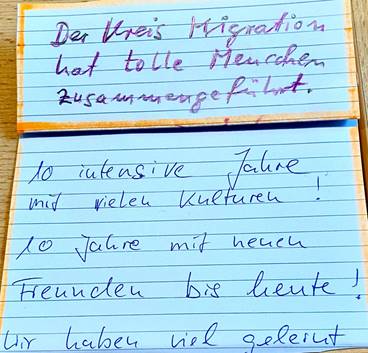 Der Kreis Migration
hat tolle Menschen
zusammengeführt.
10 intensive Jahre
mit vielen Kulturen!
10 Jahre mit neuen
Freunden bis heute!
Wir haben viel gelernt